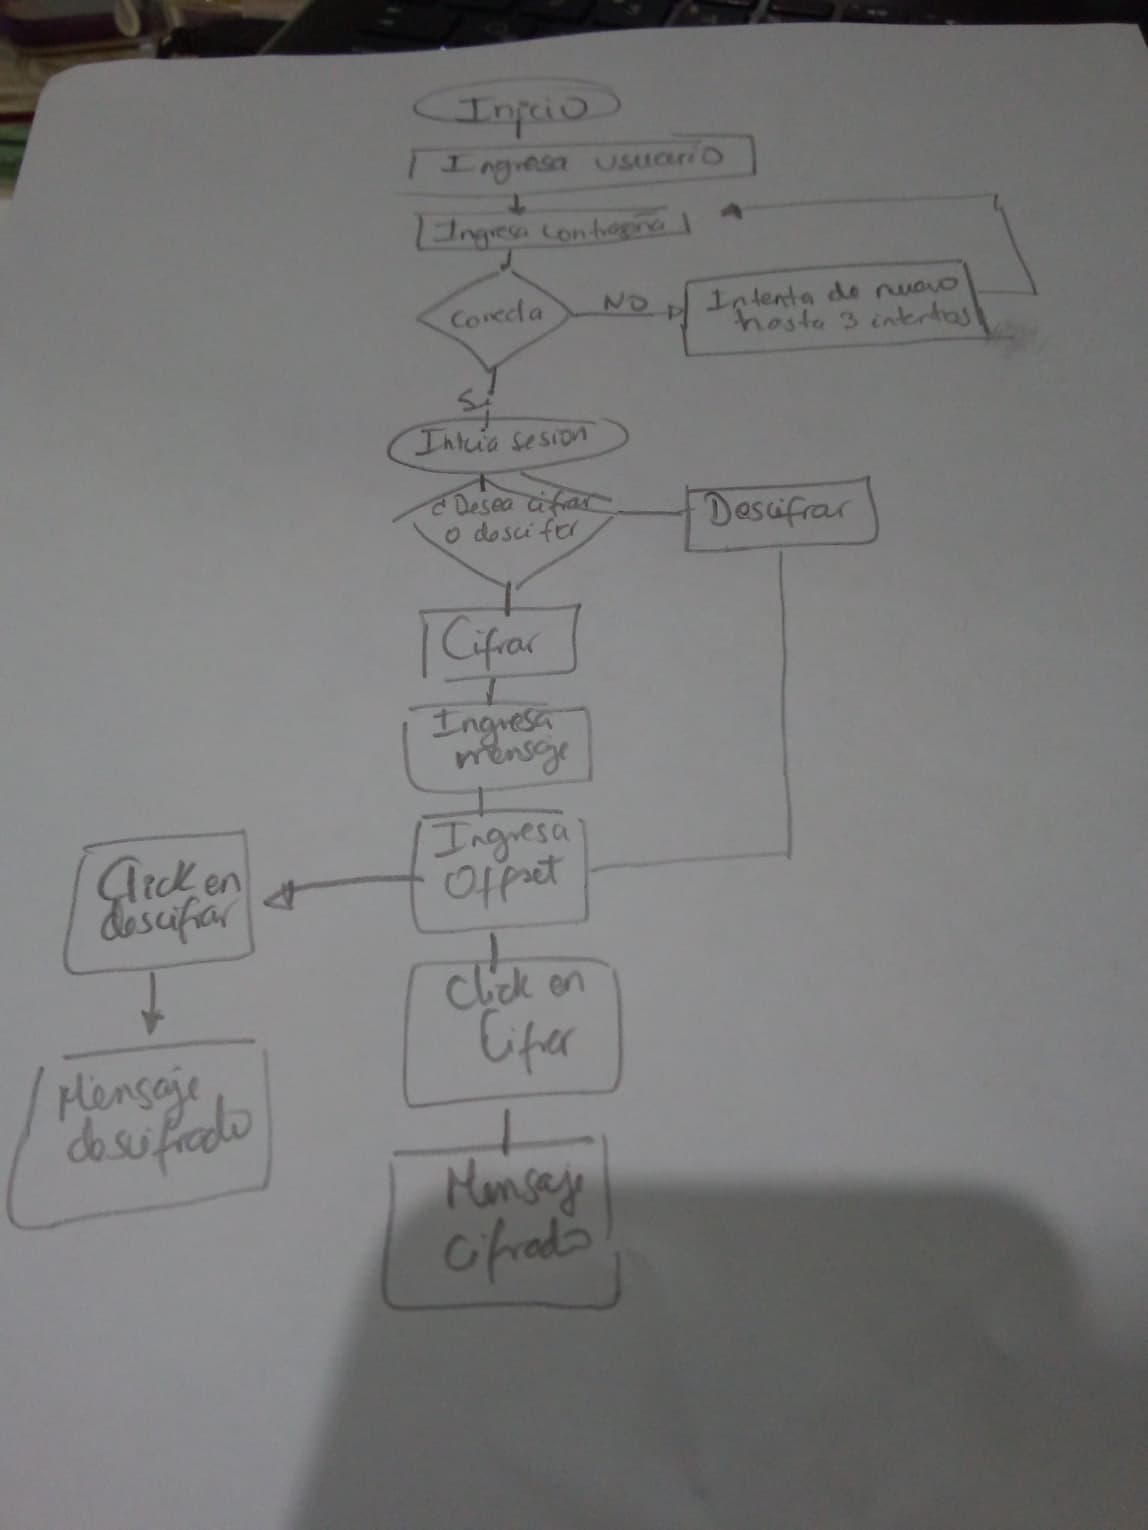 Inicio
Ingresa usuario
Ingresa contraseña
Correcta
NO
Intenta de nuevo
hasta 3 intentos
Si
Inicia sesion
¿Desea cifrar
o descifrar
Descifrar
Cifrar
Ingresa
mensaje
Ingresa
Offset
Click en
descifrar
Click en
Cifrar
Mensaje
descifrado
Mensaje
Cifrado